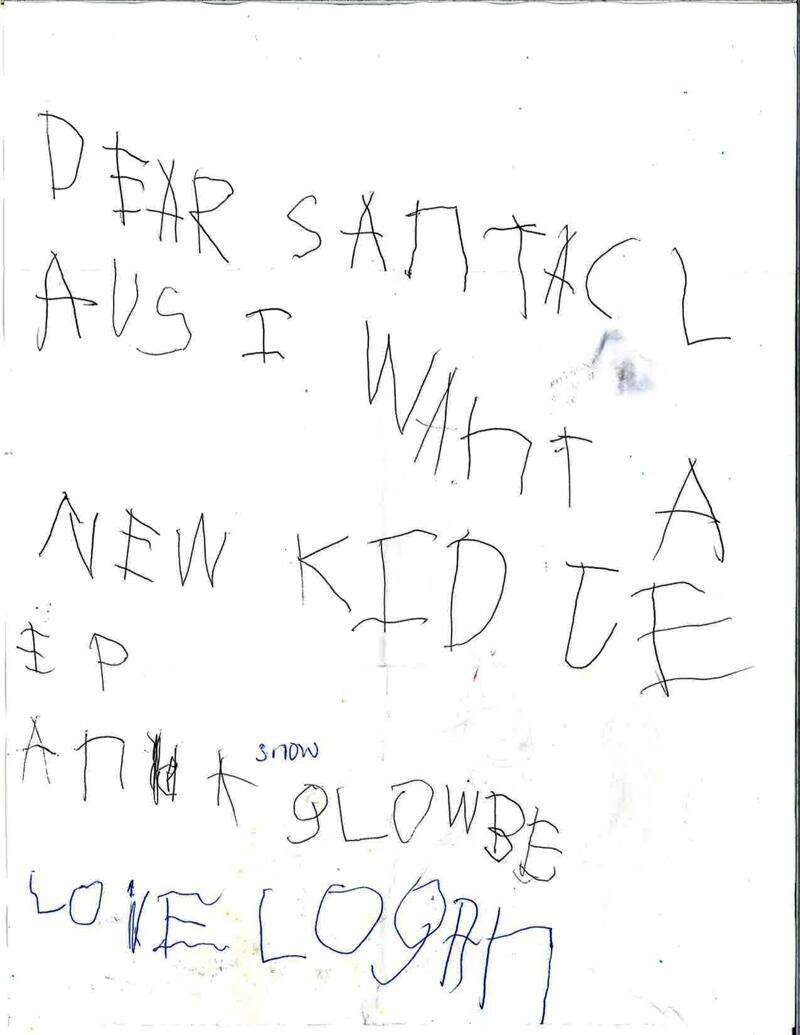 DEAR SANTACL
AUS I WANT A
NEW KID JE
EP
AN
snow
GLOWBE
LOVE LOGAN